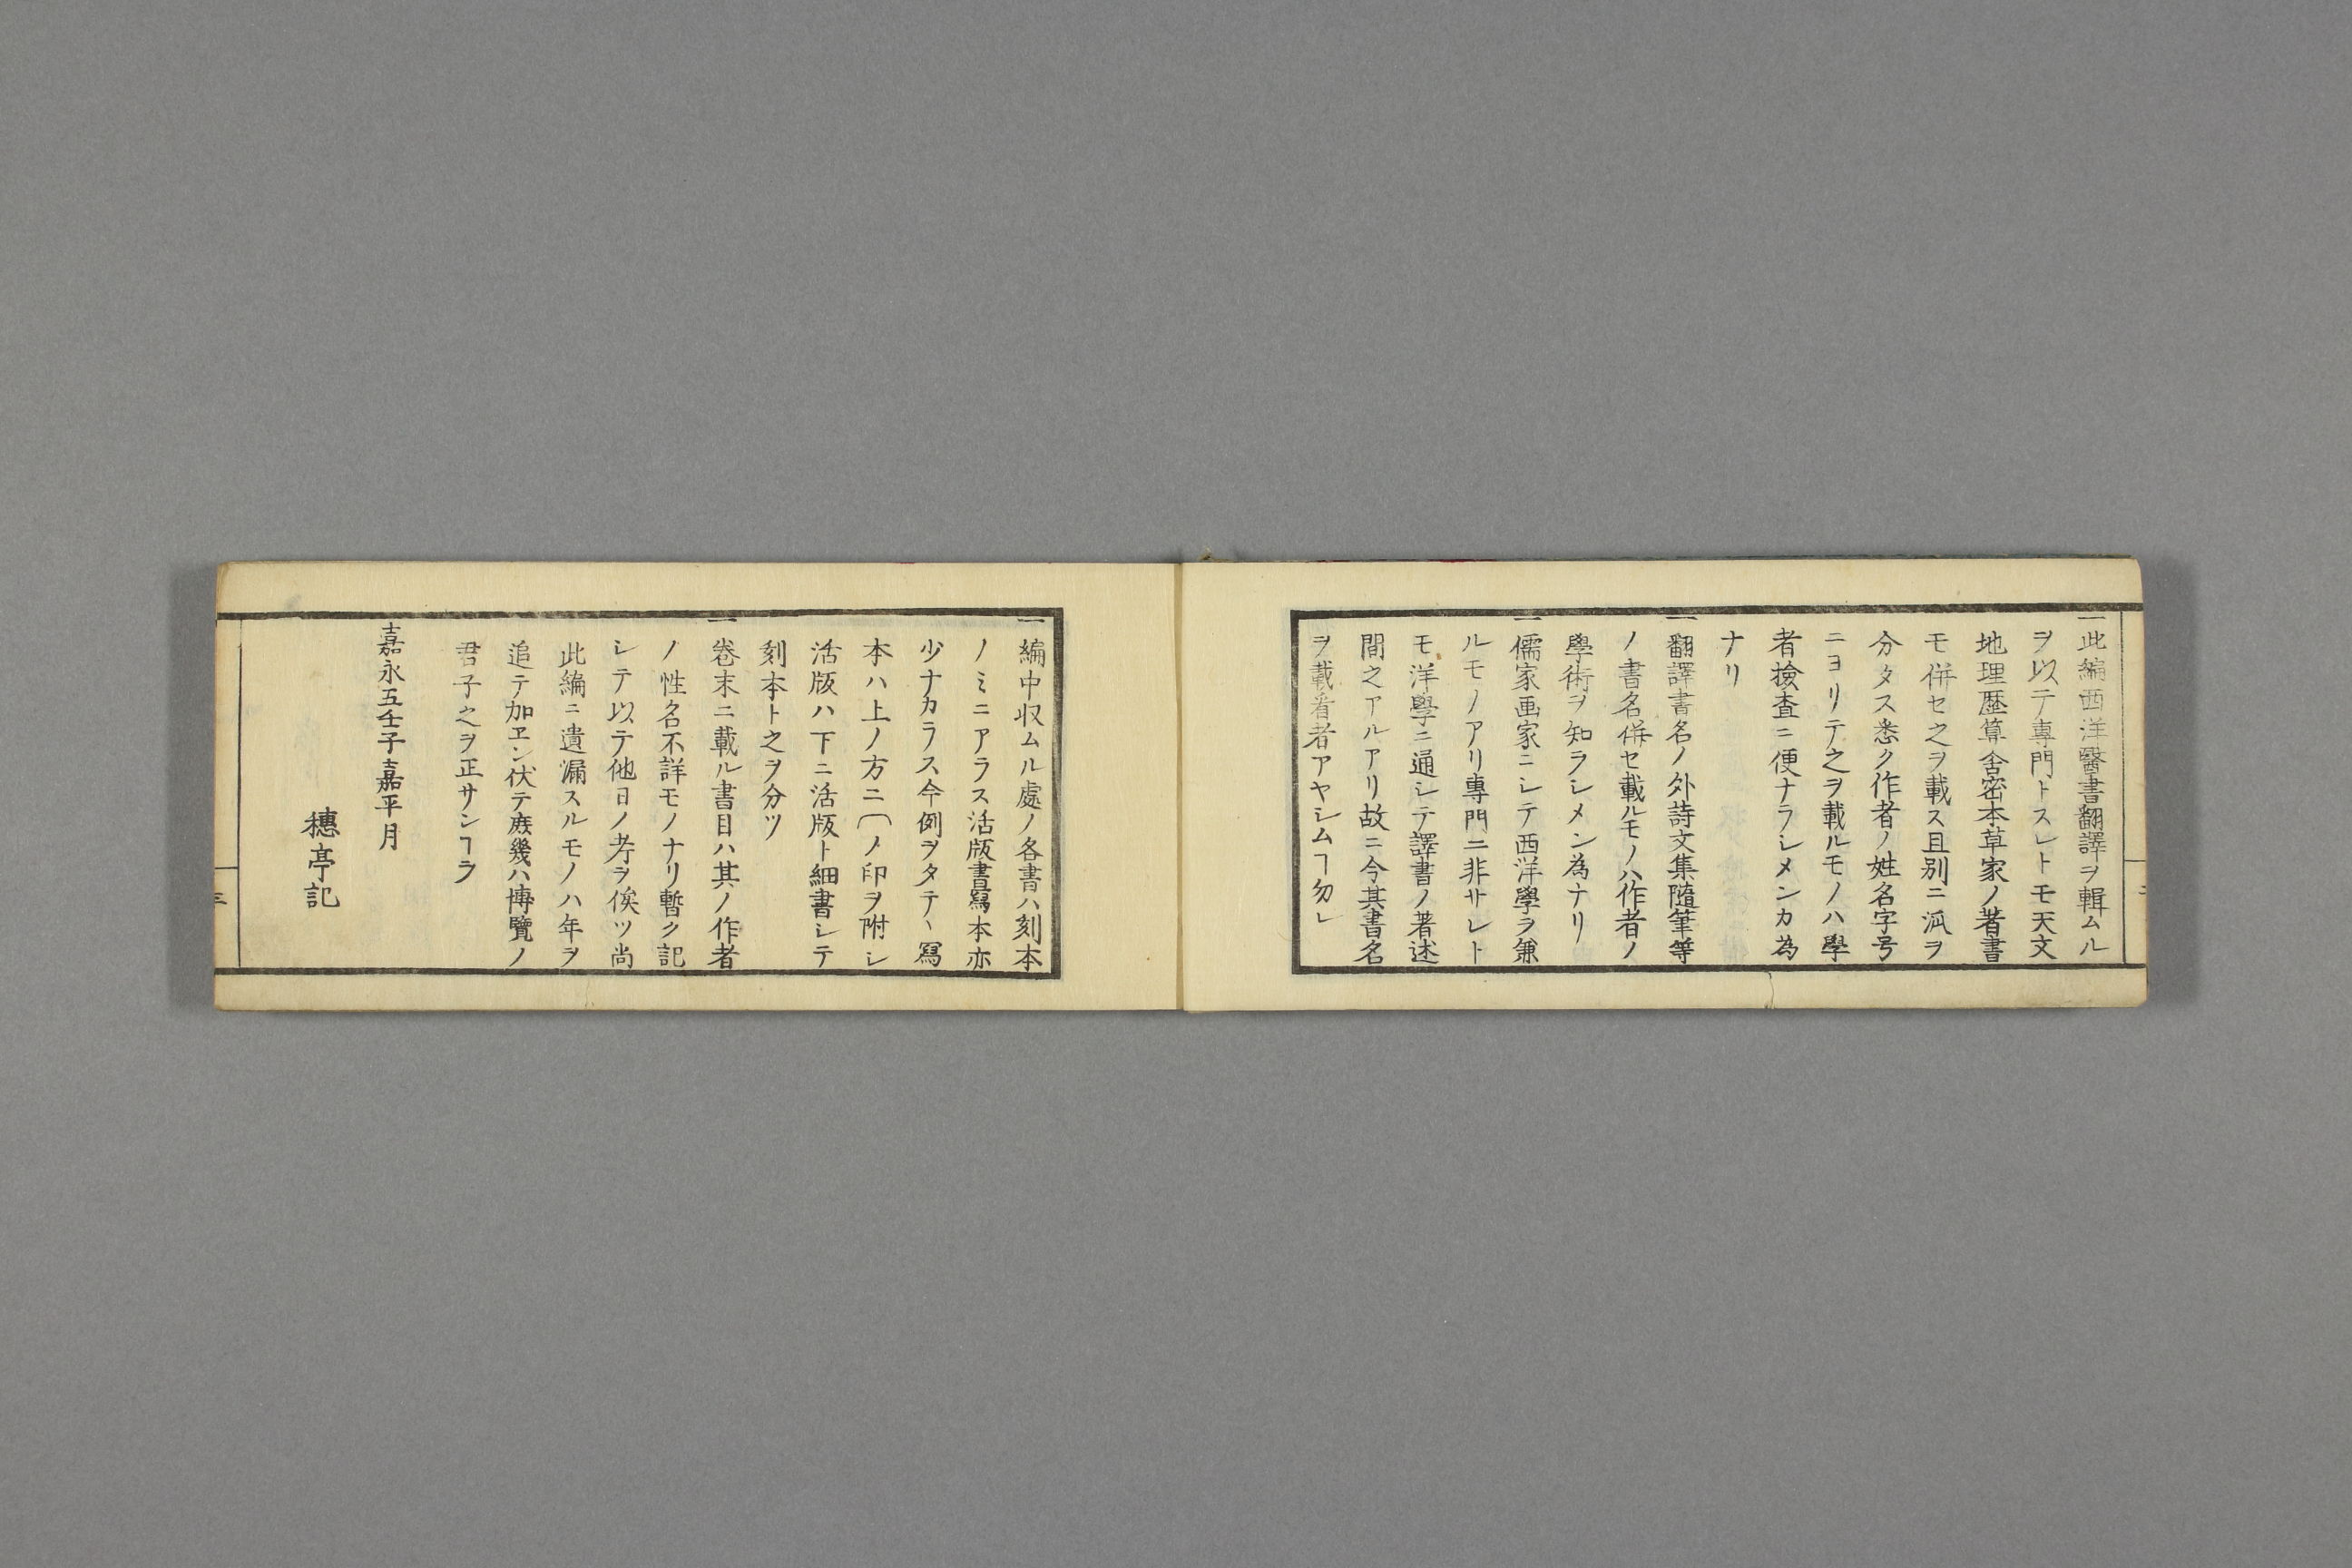 一此編西洋醫書翻譯ヲ輯ムル
ヲ以テ専門トスレトモ天文
地理歴算舎密本草家ノ著書
モ併セ之ヲ載ス且別ニ派ヲ
分タス悉ク作者ノ姓名字号
ニヨリテ之ヲ載ルモノハ學
者撿査ニ便ナラシメンカ為
ナリ
一翻譯書名ノ外詩文集随筆等
ノ書名併セ載ルモノハ作者ノ
學術ヲ知ラシメン為ナリ
一儒家画家ニシテ西洋學ヲ兼
ルモノアリ專門ニ非サレト
モ洋學ニ通シテ譯書ノ著述
間之アルアリ故ニ今其書名
ヲ載看者アヤシムヿ勿レ
一編中収ムル處ノ各書ハ刻本
ノミニアラス活版書寫本亦
少ナカラス今例ヲタテヽ寫
本ハ上ノ方ニ〔ノ印ヲ附シ
活版ハ下ニ活版ト細書シテ
刻本ト之ヲ分ツ
一卷末ニ載ル書目ハ其ノ作者
ノ性名不詳モノナリ暫ク記
シテ以テ他日ノ考ヲ俟ツ尚
此編ニ遺漏スルモノハ年ヲ
追テ加ヱン伏テ庶幾ハ博覽ノ
君子之ヲ正サンヿヲ
嘉永五壬子嘉平月
穗亭記
三